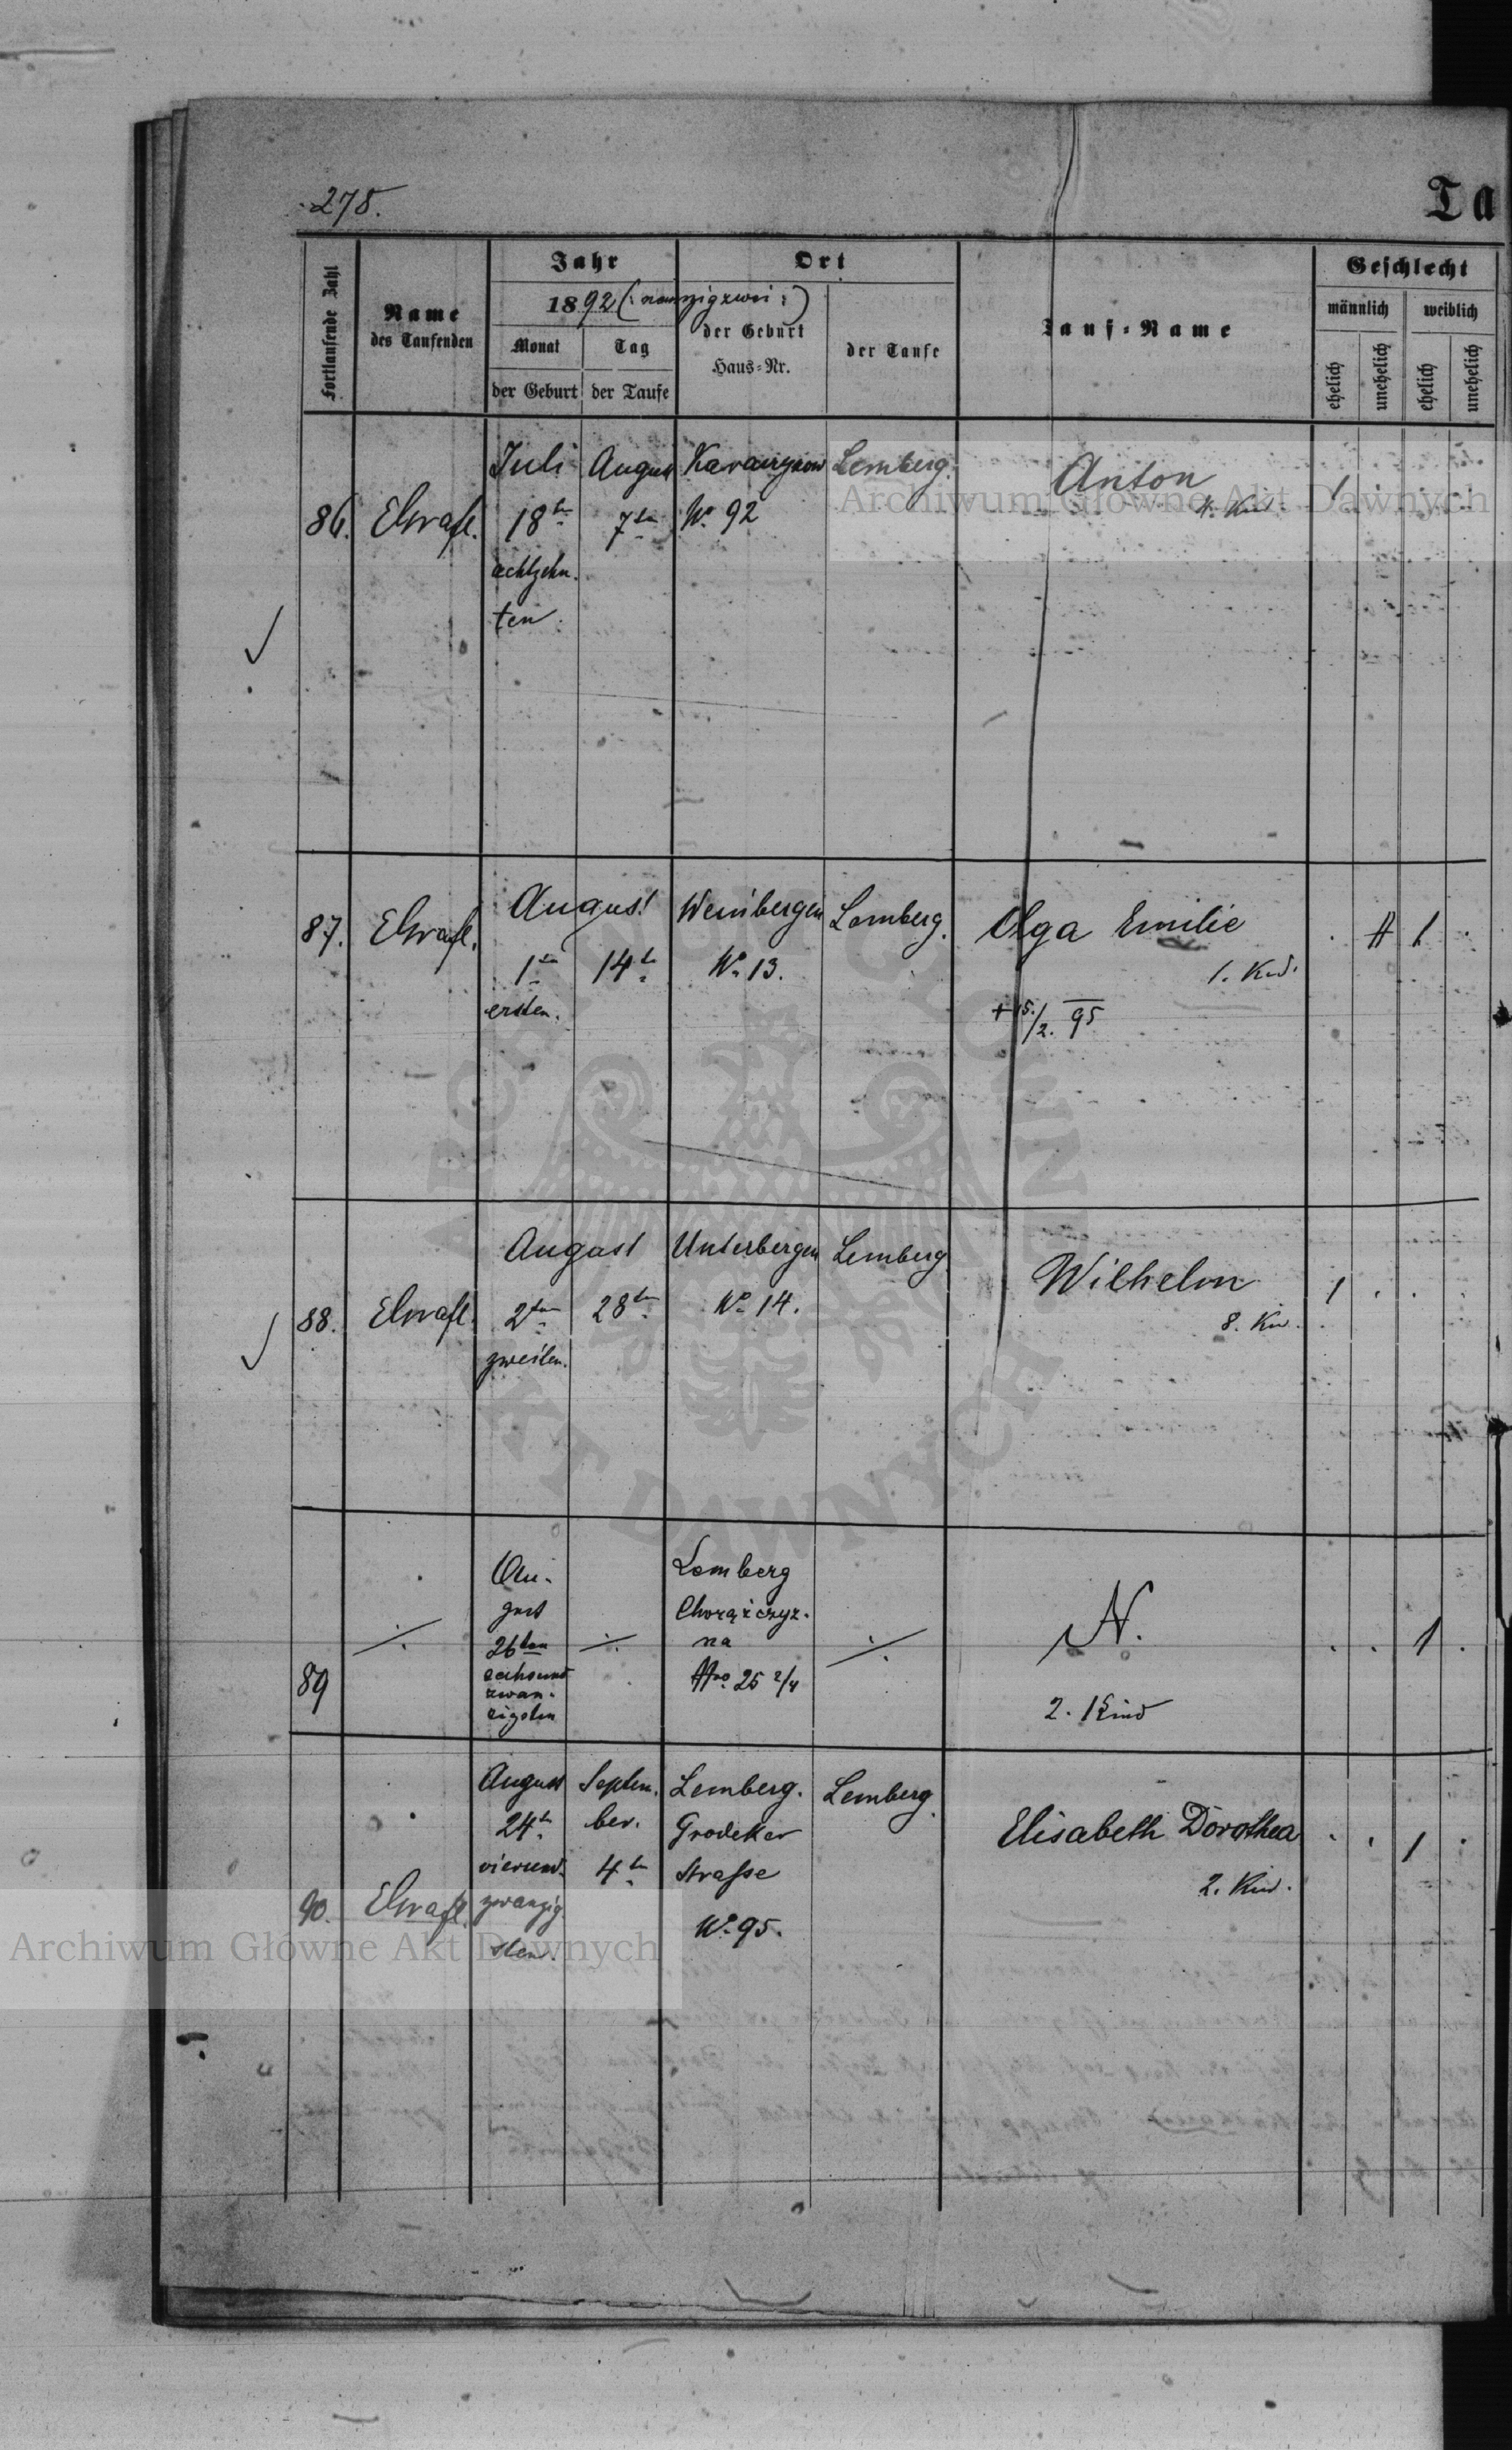 278.
Ta
Fortlaufende Zahl
Name
des Taufenden
Jahr
1892 (: neunzigzwei :)
Monat
Tag
der Geburt
der Taufe
Ort
der Geburt
Haus-Nr.
der Taufe
Tauf-Name
Geschlecht
männlich
weiblich
ehelich
unehelich
ehelich
unehelich
86.
Juli
18ten
achtzehn-
ten
August
7ten
No 92
Lemberg.
Anton
4. Kind
1
87.
August
1ten
ersten.
14ten
Weinbergen
No 13.
Lemberg.
Olga Emilie
1. Kind.
+ 15./2. 95
1
88.
August
2ten
zweiten.
28ten
Unterbergen
No 14.
Lemberg
Wilhelm
8. Kind.
1
89
Au-
gust
26ten
sechsund
zwan-
zigsten
Lemberg
Chorążczyz-
na
Nro 25 2/4
N.
2. Kind
1
90.
August
24ten
vierund-
zwanzig-
sten.
Septem-
ber.
4ten
Lemberg.
Grodeker
Strasse
No 95.
Lemberg.
Elisabeth Dorothea
2. Kind.
1
Archiwum Główne Akt Dawnych
ARCHIWUM GŁÓWNE AKT DAWNYCH
Archiwum Główne Akt Dawnych